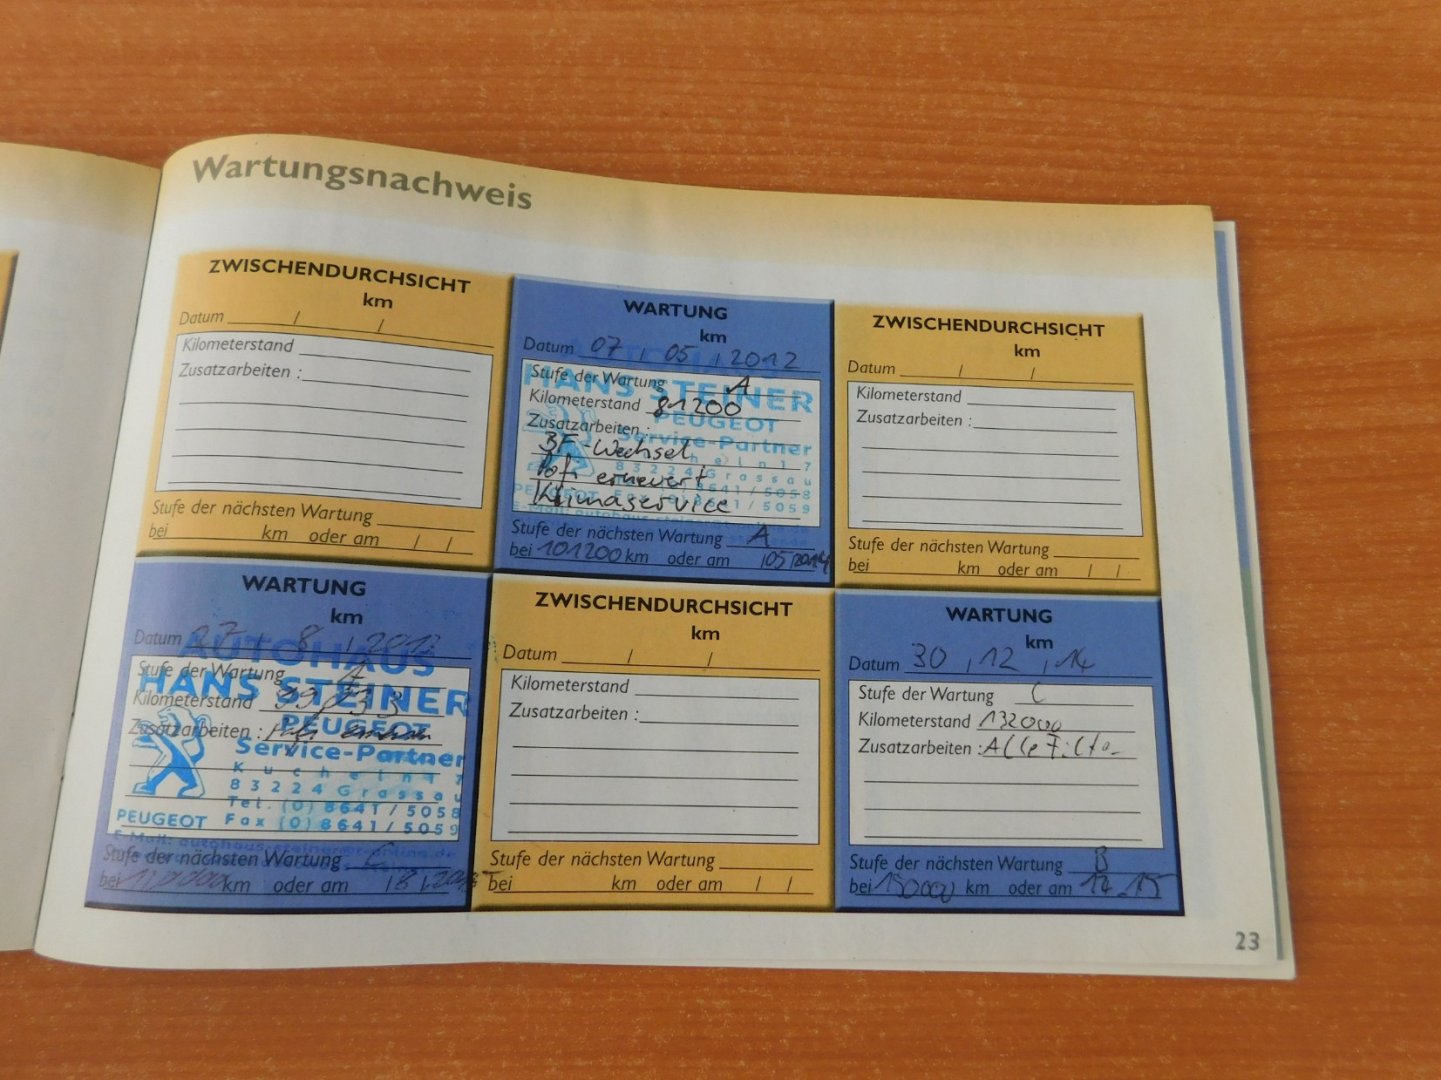 Wartungsnachweis
ZWISCHENDURCHSICHT
km
Datum / /
Kilometerstand
Zusatzarbeiten :
Stufe der nächsten Wartung
bei km oder am / /
WARTUNG
km
Datum 07 , 05 , 2012
Stufe der Wartung A
Kilometerstand 81200
Zusatzarbeiten :
BF-Wechsel
erneuert
Klimaservice
AUTOHAUS
HANS STEINER
PEUGEOT
Service-Partner
83224 Grassau
PEUGEOT Fax (0) 8641 / 5059
Stufe der nächsten Wartung A
bei 101200 km oder am 05 2014
ZWISCHENDURCHSICHT
km
Datum / /
Kilometerstand
Zusatzarbeiten :
Stufe der nächsten Wartung
bei km oder am / /
WARTUNG
km
Datum 27 , 8 , 2013
Stufe der Wartung
Kilometerstand
Zusatzarbeiten :
AUTOHAUS
HANS STEINER
PEUGEOT
Service-Partner
83224 Grassau
Tel. (0) 8641 / 5058
PEUGEOT Fax (0) 8641 / 5059
Stufe der nächsten Wartung C
bei km oder am
ZWISCHENDURCHSICHT
km
Datum / /
Kilometerstand
Zusatzarbeiten :
Stufe der nächsten Wartung
bei km oder am / /
WARTUNG
km
Datum 30 , 12 , 14
Stufe der Wartung C
Kilometerstand 132000
Zusatzarbeiten : Alle Filter
Stufe der nächsten Wartung B
bei 150000 km oder am 12 15
23